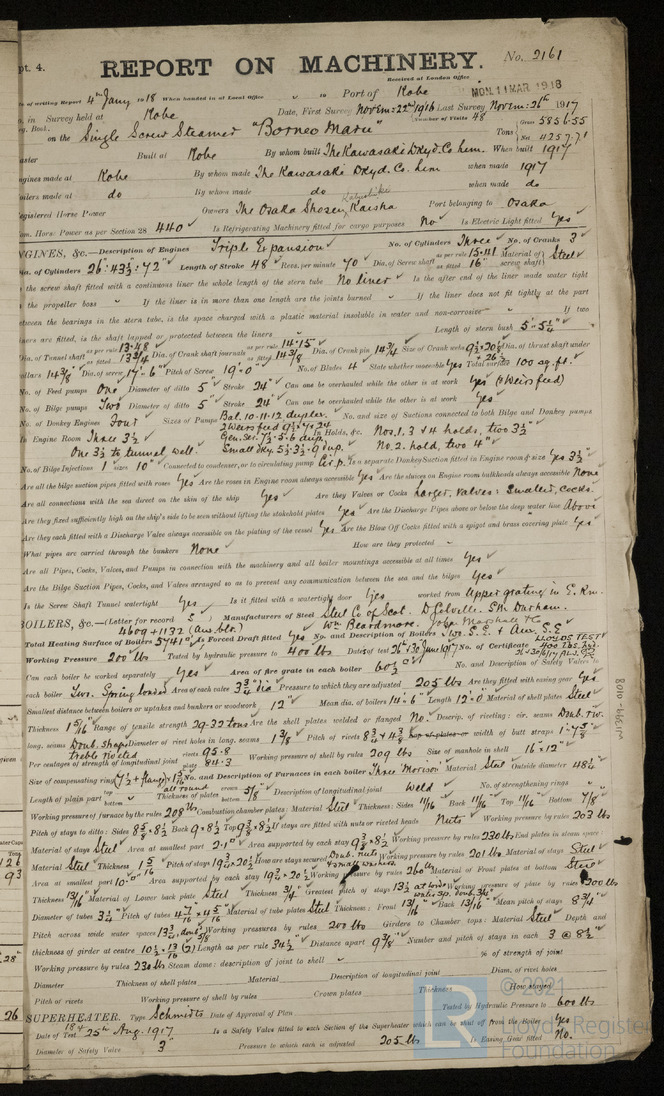 pt. 4.
REPORT ON MACHINERY.
No. 2161
Received at London Office
MON. 11 MAR 1918
te of writing Report 4th Jany 1918 When handed in at Local Office 19 Port of Kobe
o. in Survey held at Kobe Date, First Survey Novem: 22nd 1916 Last Survey Novem: 26th 1917
g. Book. Number of Visits 48
on the Single Screw Steamer "Borneo Maru"
Tons Gross 5856.55
Net 4257.71
aster Built at Kobe By whom built The Kawasaki Dkyd. Co. Lim. When built 1917
ngines made at Kobe By whom made The Kawasaki Dkyd. Co. Lim when made 1917
oilers made at do By whom made do when made do
egistered Horse Power Owners The Osaka Shosen Kabushiki Kaisha Port belonging to Osaka
om. Horse Power as per Section 28 440 Is Refrigerating Machinery fitted for cargo purposes No Is Electric Light fitted Yes
NGINES, &c.—Description of Engines Triple Expansion No. of Cylinders Three No. of Cranks 3
Dia. of Cylinders 26": 43½": 72" Length of Stroke 48 Revs. per minute 70 Dia. of Screw shaft as per rule 15.111 as fitted 16" Material of screw shaft Steel
s the screw shaft fitted with a continuous liner the whole length of the stern tube No liner Is the after end of the liner made water tight
the propeller boss If the liner is in more than one length are the joints burned If the liner does not fit tightly at the part
etween the bearings in the stern tube, is the space charged with a plastic material insoluble in water and non-corrosive If two
liners are fitted, is the shaft lapped or protected between the liners Length of stern bush 5'-5¼"
Dia. of Tunnel shaft as per rule 13.48 as fitted 13¾ Dia. of Crank shaft journals as per rule 14.15" as fitted 14⅜ Dia. of Crank pin 14¾ Size of Crank webs Dia. of thrust shaft under
ollars 14⅜" Dia. of screw 17'-6" Pitch of Screw 19'-0" No. of Blades 4 State whether moveable Yes Total surface 100 sq. ft.
No. of Feed pumps One Diameter of ditto 5" Stroke 24" Can one be overhauled while the other is at work Yes (& Weirs feed)
No. of Bilge pumps Two Diameter of ditto 5" Stroke 24 Can one be overhauled while the other is at work Yes
No. of Donkey Engines Four Sizes of Pumps Bal. 10.11.12 duplex. No. and size of Suctions connected to both Bilge and Donkey pumps
2 Weirs feed 9½.7.24
In Engine Room Three 3½ Gen. Ser. 7½.5.6 dup. In Holds, &c. Nos. 1, 3 & 4 holds, two 3½"
One 3½ to tunnel well. Small dky. 5½.3½.9 dup. No. 2 hold, two 4"
No. of Bilge Injections 1 size 10" Connected to condenser, or to circulating pump Cir. p. Is a separate Donkey Suction fitted in Engine room & size Yes 3½"
Are all the bilge suction pipes fitted with roses Yes Are the roses in Engine room always accessible Yes Are the sluices on Engine room bulkheads always accessible None
Are all connections with the sea direct on the skin of the ship Yes Are they Valves or Cocks Larger, valves: Smaller, cocks
Are they fixed sufficiently high on the ship's side to be seen without lifting the stokehold plates Yes Are the Discharge Pipes above or below the deep water line Above
Are they each fitted with a Discharge Valve always accessible on the plating of the vessel Yes Are the Blow Off Cocks fitted with a spigot and brass covering plate Yes
What pipes are carried through the bunkers None How are they protected
Are all Pipes, Cocks, Valves, and Pumps in connection with the machinery and all boiler mountings accessible at all times Yes
Are the Bilge Suction Pipes, Cocks, and Valves arranged so as to prevent any communication between the sea and the bilges Yes
Is the Screw Shaft Tunnel watertight Yes Is it fitted with a watertight door Yes worked from Upper grating in E. Rm.
BOILERS, &c.—(Letter for record S) Manufacturers of Steel Steel Co of Scot. D. Colville. S. Durham.
4609 + 1132 (Aux blr.) Wm Beardmore. John Marshall & Co
Total Heating Surface of Boilers 5741 Is Forced Draft fitted Yes No. and Description of Boilers Two S.E. & Aux. S.E
Working Pressure 200 lbs Tested by hydraulic pressure to 400 lbs Date of test 26th & 30 June 1917 No. of Certificate LLOYDS TEST 400 lbs.
Can each boiler be worked separately Yes Area of fire grate in each boiler 60½ No. and Description of Safety Valves to
each boiler Two. Spring loaded Area of each valve 3¾" dia Pressure to which they are adjusted 205 lbs Are they fitted with easing gear Yes
Smallest distance between boilers or uptakes and bunkers or woodwork 12" Mean dia. of boilers 14'-6" Length 12'-0" Material of shell plates Steel
Thickness 1 5/16 Range of tensile strength 29-32 tons Are the shell plates welded or flanged No. Descrip. of riveting: cir. seams Doub. riv.
long. seams Doub. straps Treble riveted Diameter of rivet holes in long. seams 1⅜ Pitch of rivets width of butt straps
Per centages of strength of longitudinal joint rivets 95.8 plate 84.3 Working pressure of shell by rules 209 lbs Size of manhole in shell 16" × 12"
Size of compensating ring 7½ + flange × 15/16 No. and Description of Furnaces in each boiler Three Morison Material Steel Outside diameter 48¼
Length of plain part top bottom Thickness of plates all round 5/8" Description of longitudinal joint Weld No. of strengthening rings
Working pressure of furnace by the rules 208 lbs Combustion chamber plates: Material Steel Thickness: Sides 11/16 Back 11/16 Top 11/16 Bottom 7/8"
Pitch of stays to ditto: Sides 8⅝ × 8½ Back 9 × 8½ Top 9⅜ × 8½ If stays are fitted with nuts or riveted heads Nuts Working pressure by rules 203 lbs
Material of stays Steel Area at smallest part 2.1 Area supported by each stay 9⅜ × 8½ Working pressure by rules 230 lbs End plates in steam space:
Material Steel Thickness 1 5/16 Pitch of stays 19¾ × 20½ How are stays secured Doub. nuts & small washers Working pressure by rules 201 lbs Material of stays Steel
Area at smallest part 10.0 Area supported by each stay 19¾ × 20½ Working pressure by rules 260 lbs Material of Front plates at bottom Steel
Thickness 13/16 Material of Lower back plate Steel Thickness 3/4 Greatest pitch of stays 13½ at wide water sp. doub. Working pressure of plate by rules 200 lbs
Diameter of tubes 3½ Pitch of tubes 4 7/16 × 4 5/16 Material of tube plates Steel Thickness: Front 13/16 Back 13/16 Mean pitch of stays 8¾
Pitch across wide water spaces 13¾ doub. 5/8 Working pressures by rules 200 lbs Girders to Chamber tops: Material Steel Depth and
thickness of girder at centre 10½ × 13/16 (2) Length as per rule 34½" Distance apart 9⅜" Number and pitch of stays in each 3 @ 8½"
Working pressure by rules 230 lbs Steam dome: description of joint to shell % of strength of joint
Diameter Thickness of shell plates Material Description of longitudinal joint Diam. of rivet holes
Pitch of rivets Working pressure of shell by rules Crown plates Thickness How stayed
SUPERHEATER. Type Schmidts Date of Approval of Plan Tested by Hydraulic Pressure to 600 lbs
Date of Test 18th 25th Aug. 1917 Is a Safety Valve fitted to each Section of the Superheater which can be shut off from the Boiler Yes
Diameter of Safety Valve 3" Pressure to which each is adjusted 205 lbs. Is Easing Gear fitted No.
126
93
28"
26
© 2021
LR
Lloyd's Register
Foundation